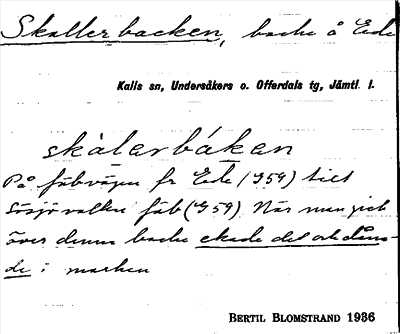 Skallerbacken, backe å Ede
Kalls sn, Undersåkers o. Offerdals tg, Jämtl. l.
skàlerbáken
På fäbvägen fr Ede (959) till
Sösjövallen fäb (959) När man gick
över denna backe ekade det och dåna-
de i marken
BERTIL BLOMSTRAND 1936